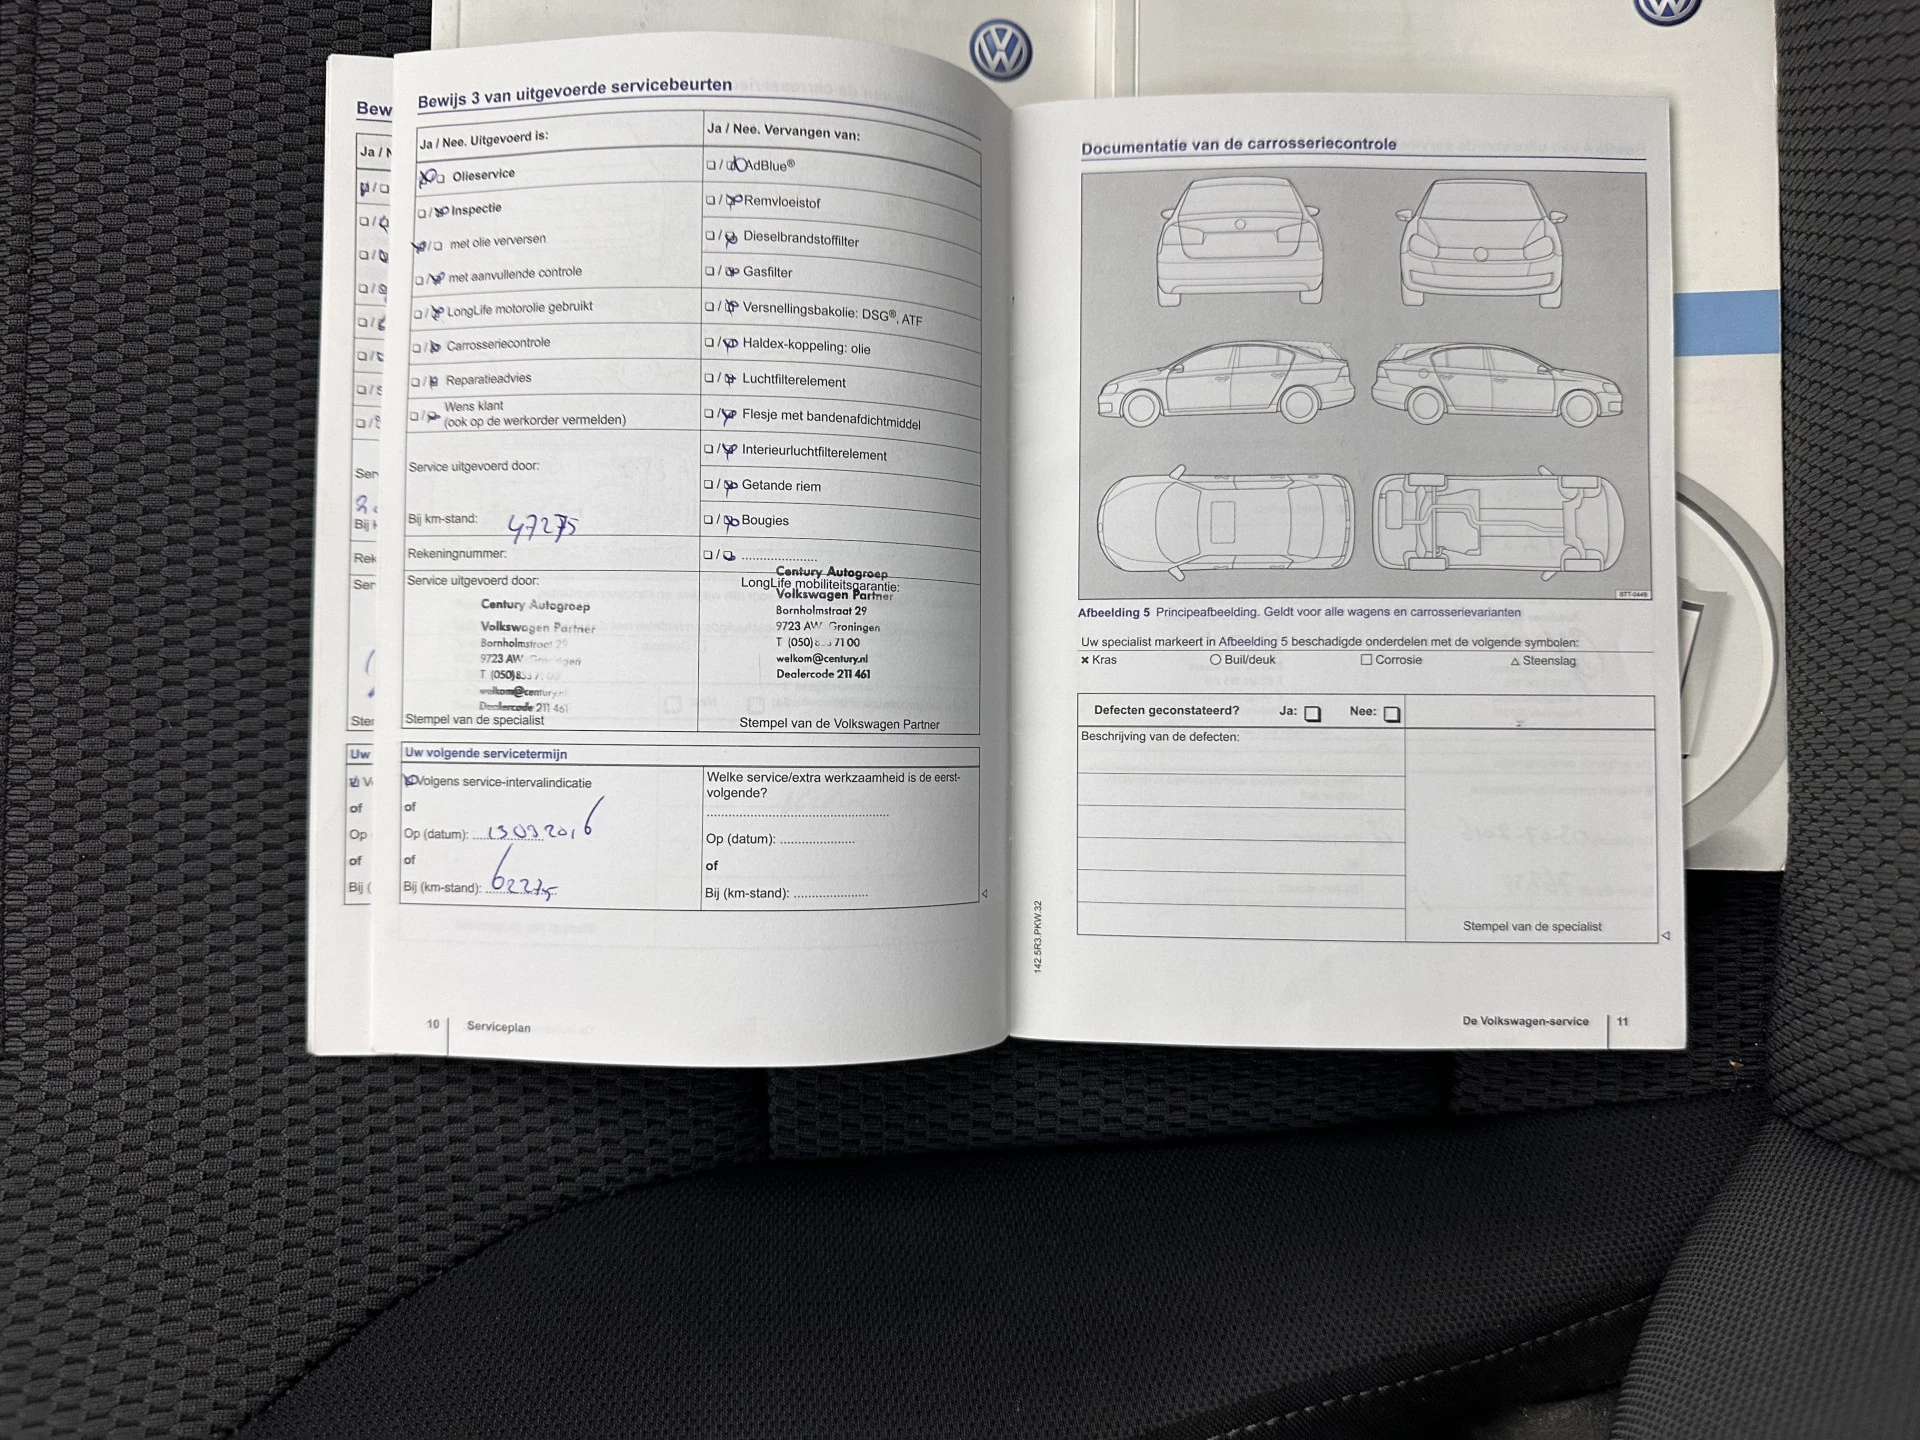 Bewijs 3 van uitgevoerde servicebeurten
Ja / Nee. Uitgevoerd is:
Olieservice
Inspectie
met olie verversen
met aanvullende controle
LongLife motorolie gebruikt
Carrosseriecontrole
Reparatieadvies
Wens klant
(ook op de werkorder vermelden)
Service uitgevoerd door:
Bij km-stand: 47275
Rekeningnummer:
Service uitgevoerd door:
Century Autogroep
Volkswagen Partner
Bornholmstraat 29
9723 AW
T (050)
welkom@century.nl
Dealercode 211 461
Stempel van de specialist
Ja / Nee. Vervangen van:
AdBlue®
Remvloeistof
Dieselbrandstoffilter
Gasfilter
Versnellingsbakolie: DSG®, ATF
Haldex-koppeling: olie
Luchtfilterelement
Flesje met bandenafdichtmiddel
Interieurluchtfilterelement
Getande riem
Bougies
....................
Century Autogroep
LongLife mobiliteitsgarantie:
Volkswagen Partner
Bornholmstraat 29
9723 AW Groningen
T (050) 71 00
welkom@century.nl
Dealercode 211 461
Stempel van de Volkswagen Partner
Uw volgende servicetermijn
Volgens service-intervalindicatie
of
Op (datum): 13 03 2016
of
Bij (km-stand): 62275
Welke service/extra werkzaamheid is de eerst-
volgende?
Op (datum): ....................
of
Bij (km-stand): ....................
10 Serviceplan
Bew
Ja / N
Ser
Bij
Rek
Ser
Ste
Uw
V
of
Op
of
Bij (
Documentatie van de carrosseriecontrole
Afbeelding 5 Principeafbeelding. Geldt voor alle wagens en carrosserievarianten
Uw specialist markeert in Afbeelding 5 beschadigde onderdelen met de volgende symbolen:
Kras Buil/deuk Corrosie Steenslag
Defecten geconstateerd? Ja: Nee:
Beschrijving van de defecten:
Stempel van de specialist
142.5R3.PKW.32
De Volkswagen-service 11